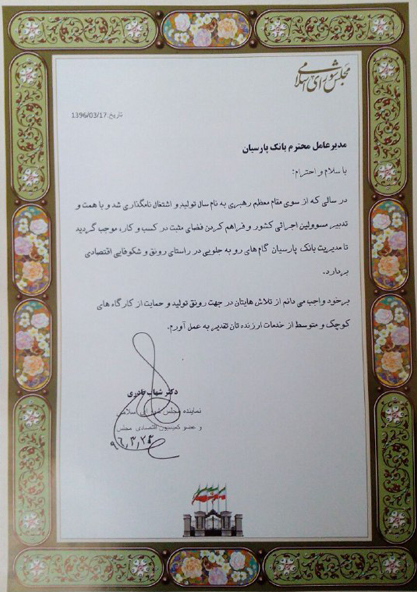 مجلس شورای اسلامی
تاریخ: 1396/03/17
مدیرعامل محترم بانک پارسیان
با سلام و احترام:
در سالی که از سوی مقام معظم رهبری به نام سال تولید و اشتغال نامگذاری شد و با همت و
تدبیر مسوولین اجرائی کشور و فراهم کردن فضای مثبت در کسب و کار، موجب گردید
تا مدیریت بانک پارسیان گام های رو به جلویی در راستای رونق و شکوفایی اقتصادی
بردارد.
برخود واجب می دانم از تلاش هایتان در جهت رونق تولید و حمایت از کارگاه های
کوچک و متوسط از خدمات ارزنده تان تقدیر به عمل آورم.
دکتر شهاب نادری
نماینده مجلس شورای اسلامی
و عضو کمیسیون اقتصادی مجلس